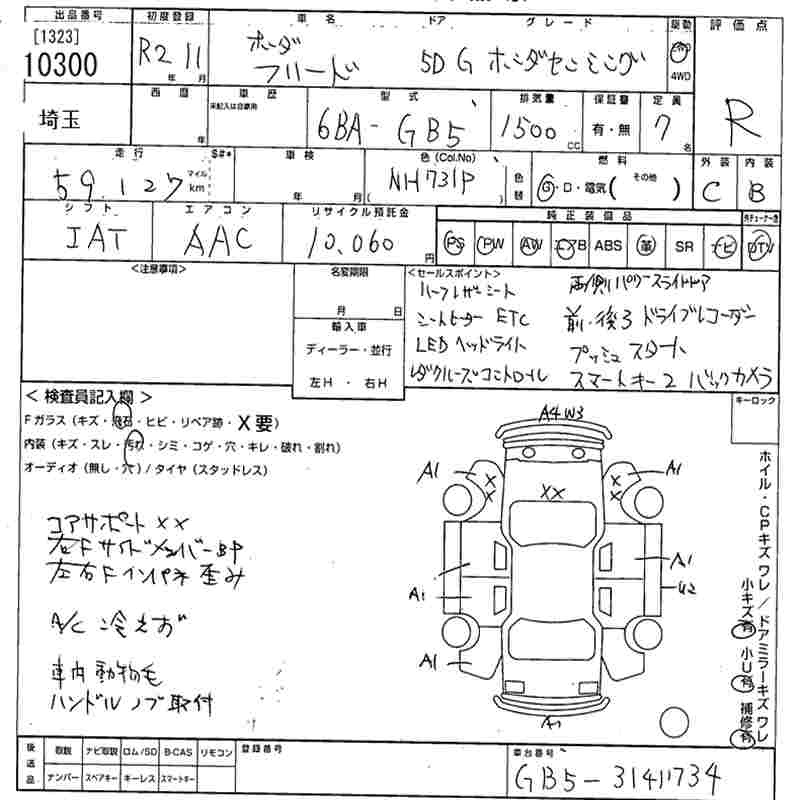 出品番号 初度登録 車名 ドア グレード 駆動 評価点
[1323]
10300
R2 11 年 月
ホンダ
フリード
5D G ホンダセンシング
2WD
4WD
R
埼玉
西暦 年
車歴
未記入は自家用
型式
6BA-GB5
排気量
1500 CC
保証書
有・無
定員
7 名
走行
59,127 マイル km
S#*
車検
年 月
色(Col.No)
NH731P
色替
燃料
G・D・電気( その他 )
外装 内装
C B
シフト
IAT
エアコン
AAC
リサイクル預託金
10,060 円
純正装備品 外チューナー含
PS PW AW エアB ABS 革 SR ナビ DTV
<注意事項>
名変期限
月 日
輸入車
ディーラー・並行
左H ・ 右H
<セールスポイント>
ハーフレザーシート 両側パワースライドドア
シートヒーター ETC 前・後3 ドライブレコーダー
LEDヘッドライト プッシュスタート
レダクルーズコントロイル スマートキー2 バックカメラ
キーロック
< 検査員記入欄 >
Fガラス (キズ・飛石・ヒビ・リペア跡・X要)
内装 (キズ・スレ・汚れ・シミ・コゲ・穴・キレ・破れ・割れ)
オーディオ (無し・穴) / タイヤ (スタッドレス)
コアサポート XX
右Fサイドメンバー BP
左右Fインパネ歪み
A/C 冷えず
車内動物毛
ハンドルノブ取付
A4 W3
A1 X X XX X X A1
A1 A1
U2
A1
A1
ホイル・CPキズ ワレ / ドアミラーキズ ワレ
小キズ有 小U有 補修有
後送品
取説 ナビ取説 ロム/SD B-CAS リモコン
ナンバー スペアキー キーレス スマートキー
登録番号
車台番号
GB5-3141734